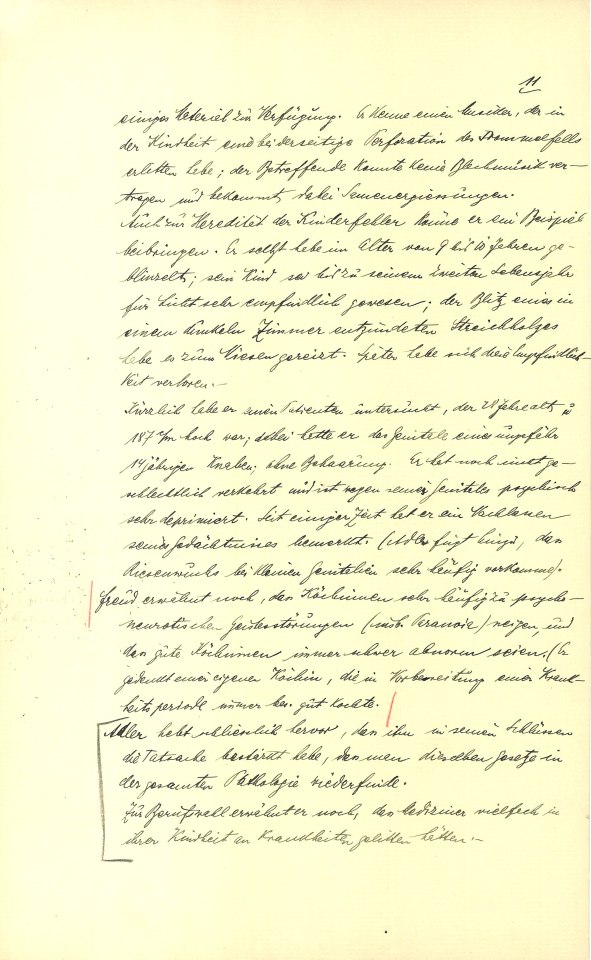 11
einiges Material zur Verfügung. Er kenne einen Musiker, der in
der Kindheit eine beiderseitige Perforation des Trommelfells
erlitten habe; der Betreffende konnte keine Blechmusik ver-
tragen und bekommt dabei Samenergiessungen.
Auch zur Heredität der Kinderfehler könne er ein Beispiel
beibringen. Er selbst habe im Alter von 9 bis 10 Jahren ge-
blinzelt; sein Kind sei bis zu seinem zweiten Lebensjahr
für Licht sehr empfindlich gewesen; der Blitz eines in
einem dunkeln Zimmer entzündeten Streichholzes
habe es zum Niesen gereizt. Später habe sich diese Empfindlich-
keit verloren.-
Kürzlich habe er einen Patienten untersucht, der 28 Jahre alt u
187 hoch war; dabei hatte er das Genitale eines ungefähr
14jährigen Knaben, ohne Behaarung. Er hat noch nicht ge-
schlechtlich verkehrt und ist wegen seines Genitales psychisch
sehr deprimiert. Seit einiger Zeit hat er ein Nachlassen
seines Gedächtnisses bemerkt. (Adler fügt hinzu, dass
Riesenwuchs bei kleinen Genitalien sehr häufig vorkomme).
Freud erwähnt noch, das Köchinnen sehr häufig zu psycho-
neurotischen Geistesstörungen (insb. Paranoia) neigen, und
das gute Köchinnen immer schwer abnorm seien. (Er
gedenkt einer eigenen Köchin, die in Vorbereitung einer Krank-
heitsperiode immer bes. gut kochte.
Adler hebt schliesslich hervor, das ihn in seinen Schlüssen
die Tatsache bestärkt habe, das man dieselben Gesetze in
der gesamten Pathologie wiederfinde.
Zur Berufswahl erwähnt er noch, das Mediziner vielfach in
ihrer Kindheit an Krankheiten gelitten hätten.-